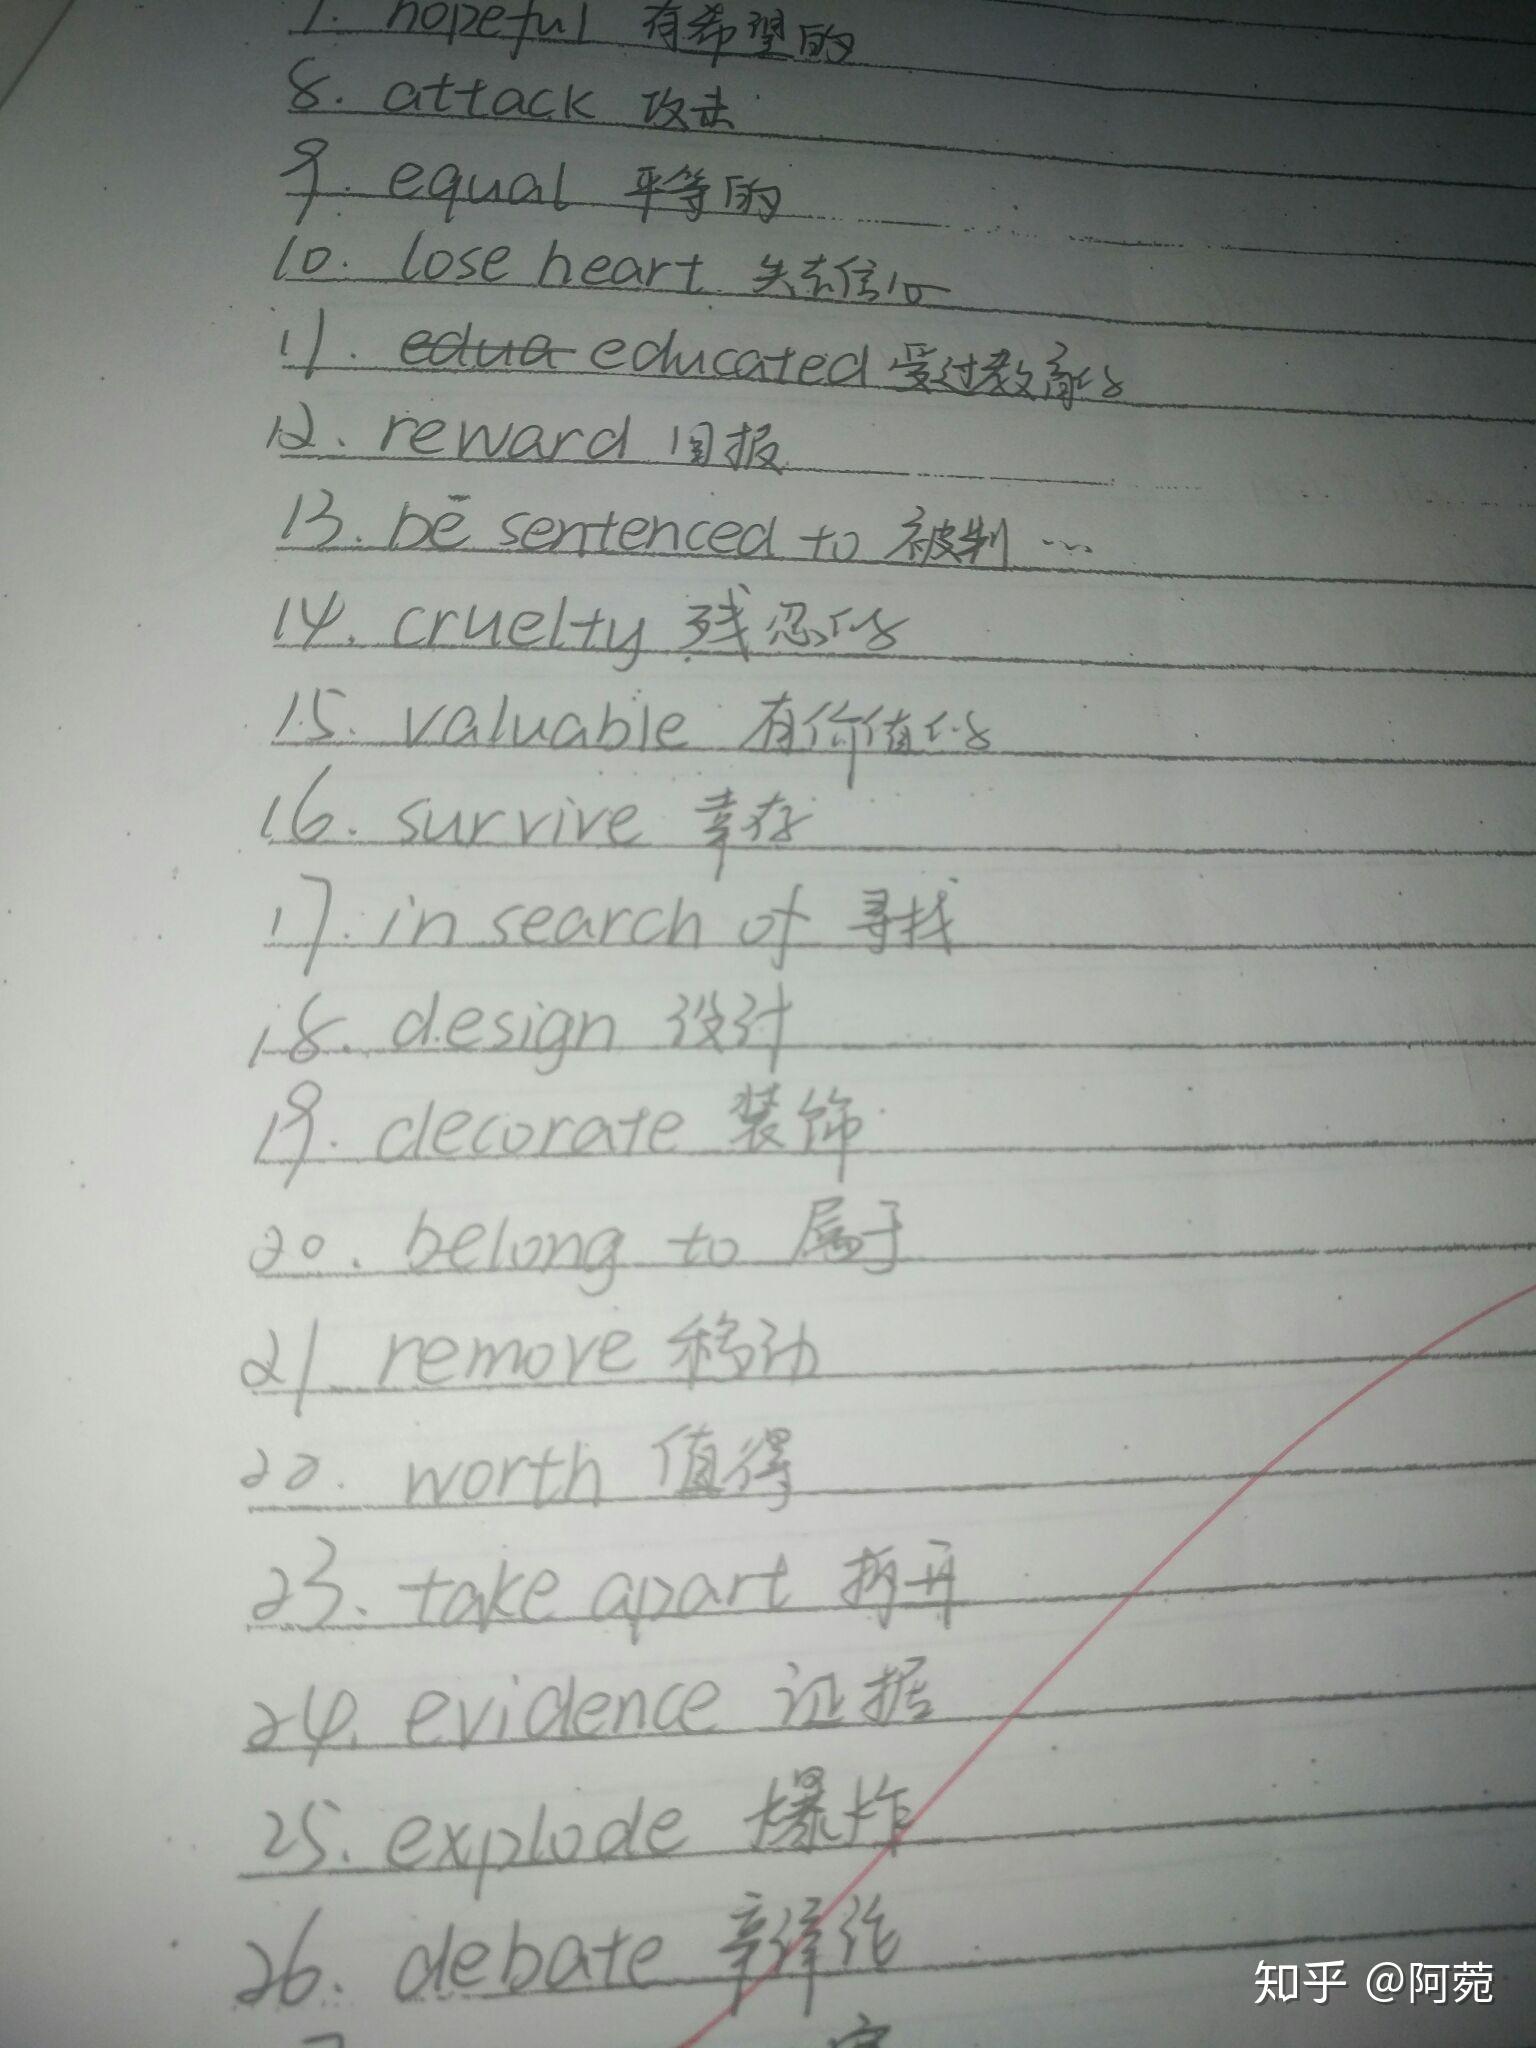 7. hopeful 有希望的
8. attack 攻击
9. equal 平等的
10. lose heart 失去信心
11. edua educated 受过教育的
12. reward 回报
13. be sentenced to 被判…
14. cruelty 残忍的
15. valuable 有价值的
16. survive 幸存
17. in search of 寻找
18. design 设计
19. decorate 装饰
20. belong to 属于
21. remove 移动
22. worth 值得
23. take apart 拆开
24. evidence 证据
25. explode 爆炸
26. debate 辩论
知乎 @阿菀